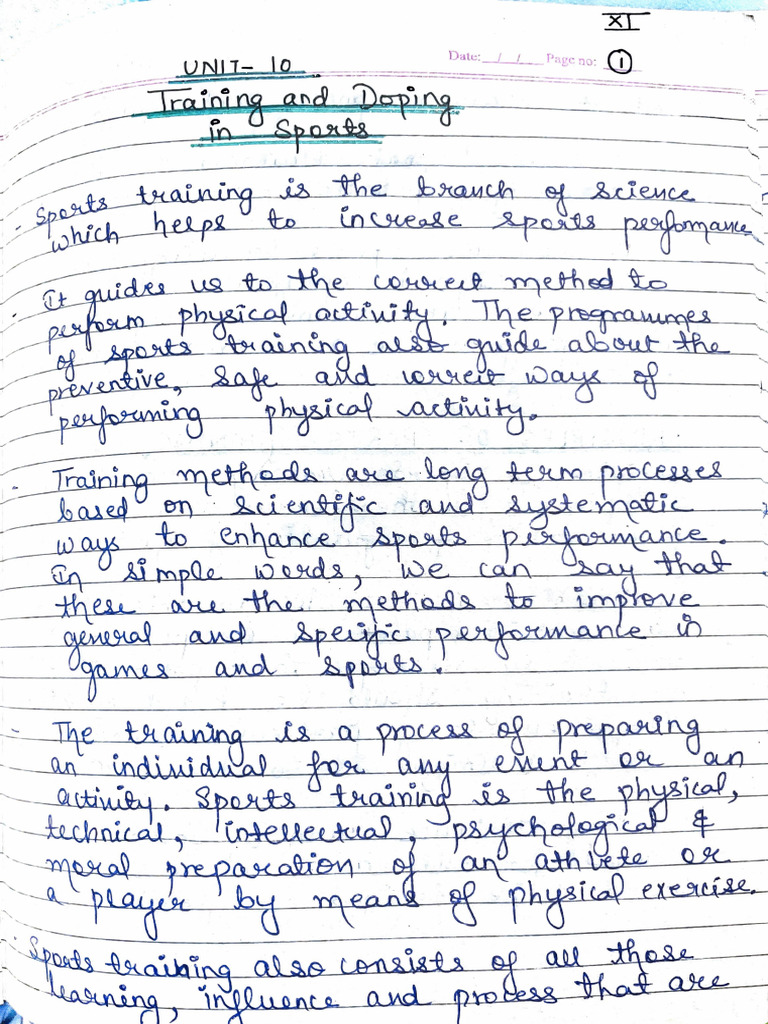 XI
Date: _/_/_ Page no: 1
UNIT- 10
Training and Doping
in Sports
- Sports training is the branch of science
which helps to increase sports perfomance
- It guides us to the correct method to
perform physical activity. The programmes
of sports training also guide about the
preventive, safe and correct ways of
performing physical activity.
- Training methods are long term processes
based on scientific and systematic
ways to enhance sports performance.
In simple words, we can say that
these are the methods to improve
general and specific performance in
games and sports.
- The training is a process of preparing
an individual for any event or an
activity. Sports training is the physical,
technical, intellectual, psychological &
moral preparation of an athlete or
a player by means of physical exercise.
- Sports training also consists of all those
learning, influence and process that are